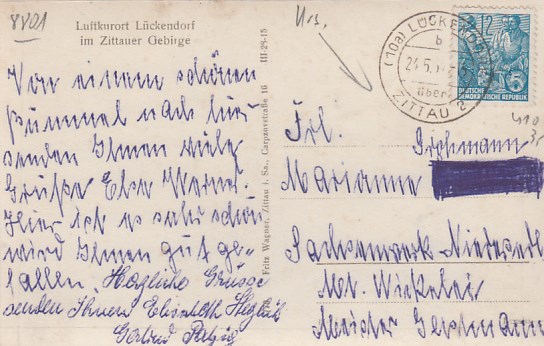 8801
Luftkurort Lückendorf
im Zittauer Gebirge
Von einem schönen
Bummel nach hier
senden Ihnen viele
Grüße Elsa Werner.
Hier ist es sehr schön
wird Ihnen gut ge-
fallen. Herzliche Grüsse
senden Ihnen Elisabeth
Gertrud
III-29-15
Fritz Wagner, Zittau i. Sa., Carpzovstraße 16
(10a) LÜCKENDORF
b
24.5.
über
ZITTAU 2
12
5
DEUTSCHE
DEMOKRATISCHE REPUBLIK
Frl.
Marianne
Sachsenwerk-Niedersedl
Mt. Wickelei
Meister